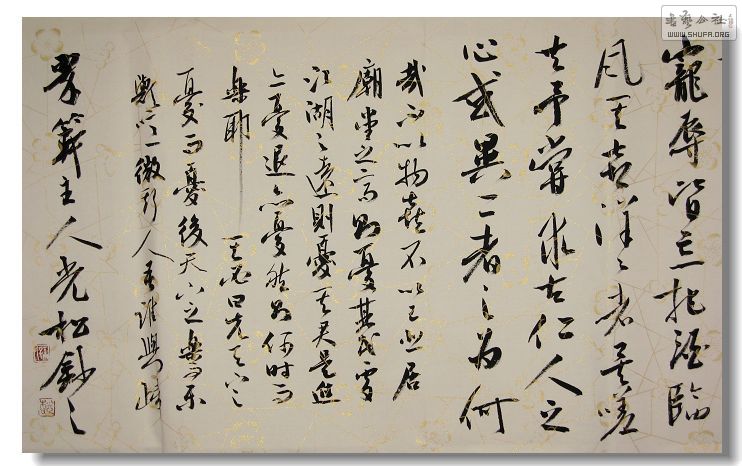 寵辱皆忘把酒臨
風其喜洋〻者矣嗟
夫予嘗求古仁人之
心或異二者之為何
哉不以物喜不以己悲居
廟堂之高則憂其民處
江湖之遠則憂其君是進
亦憂退亦憂然則何時而
樂耶 其必曰先天下之
憂而憂後天下之樂而樂
歟噫微斯人吾誰與歸
主人光松鈔之
书艺公社
WWW.SHUFA.ORG